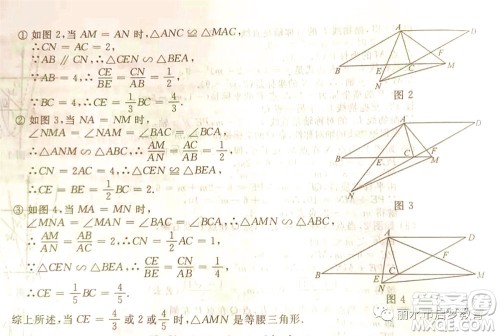 ① 如图 2,当 AM = AN 时,△ANC ≌ △MAC,
∴CN = AC = 2,
∵AB ∥ CN,∴△CEN ∽ △BEA,
∵AB = 4,∴ CE/BE = CN/AB = 1/2,
∵BC = 4,∴CE = 1/3 BC = 4/3.
② 如图 3,当 NA = NM 时,
∠NMA = ∠NAM = ∠BAC = ∠BCA,
∴△ANM ∽ △ABC,∴ AM/AN = AC/AB = 1/2,
∴CN = 2AC = 4,∴△CEN ≌ △BEA,
∴CE = BE = 1/2 BC = 2.
③ 如图 4,当 MA = MN 时,
∠MNA = ∠MAN = ∠BAC = ∠BCA,∴△AMN ∽ △ABC,
∴ AM/AN = AB/AC = 2.∴CN = 1/2 AC = 1,
∵△CEN ∽ △BEA,∴ CE/BE = CN/AB = 1/4,
∴CE = 1/5 BC = 4/5.
综上所述,当 CE = 4/3 或 2 或 4/5 时,△AMN 是等腰三角形.
A D
F
B E C M
N
图 2
A D
B E C F M
N
图 3
A D
F
B E C M
N
图 4
丽水市启梦教育